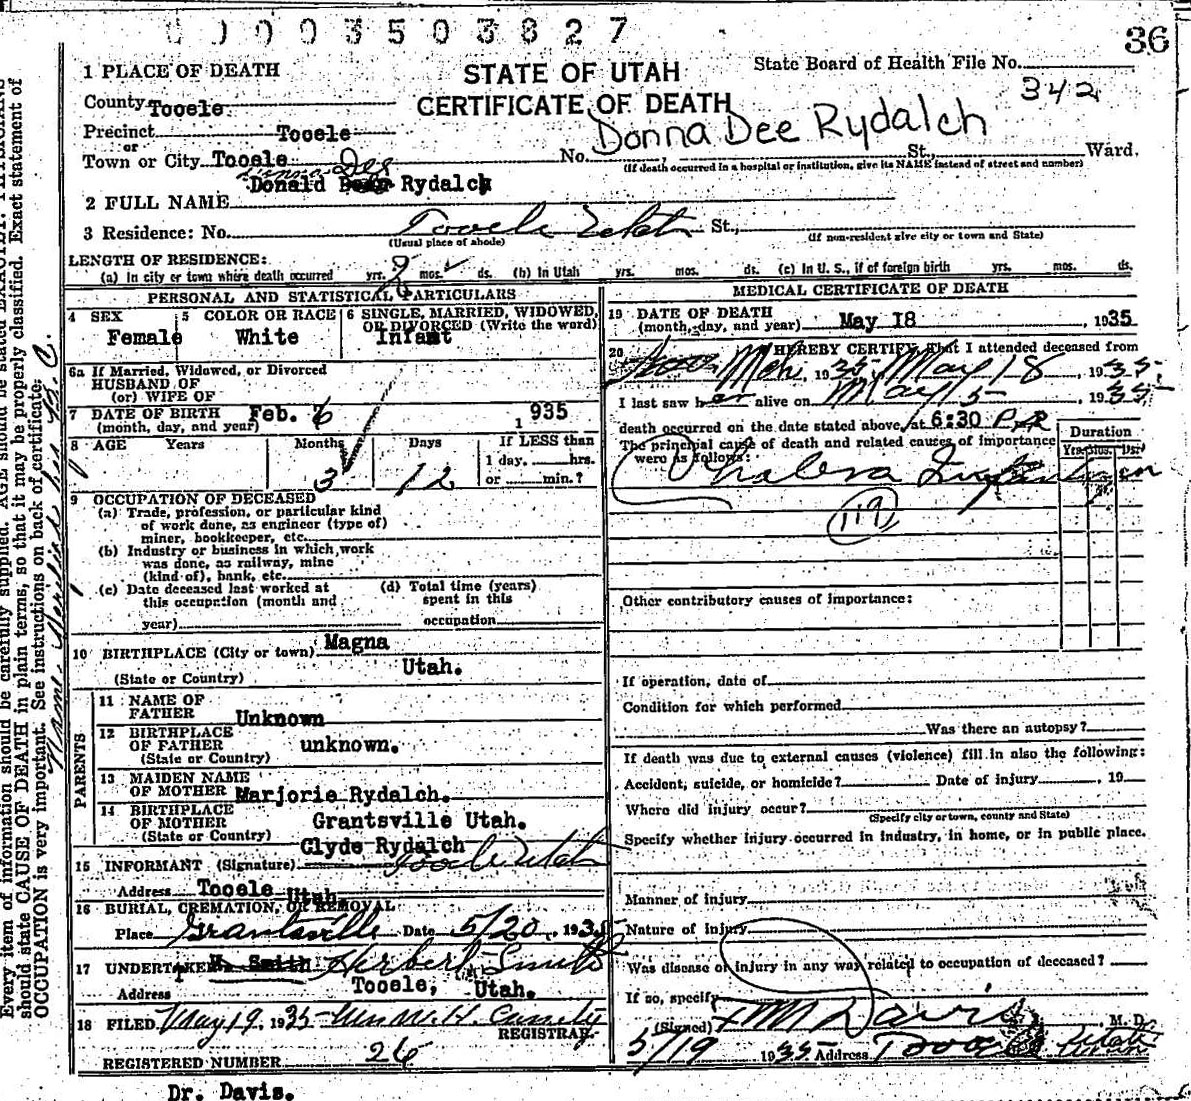 0003503827
36
1 PLACE OF DEATH
STATE OF UTAH
State Board of Health File No.
342
County Tooele
CERTIFICATE OF DEATH
Donna Dee Rydalch
Precinct Tooele
or
Town or City Tooele No. St., Ward.
(If death occurred in a hospital or institution, give its NAME instead of street and number)
Dee
Donald Rydalch
2 FULL NAME
3 Residence: No. Tooele Utah St.,
(Usual place of abode) (If non-resident give city or town and State)
LENGTH OF RESIDENCE:
(a) In city or town where death occurred yrs. mos. ds. (b) In Utah yrs. mos. ds. (c) In U. S., if of foreign birth yrs. mos. ds.
PERSONAL AND STATISTICAL PARTICULARS
4 SEX 5 COLOR OR RACE 6 SINGLE, MARRIED, WIDOWED, OR DIVORCED (Write the word)
Female White Infant
6a If Married, Widowed, or Divorced
HUSBAND OF
(or) WIFE OF
7 DATE OF BIRTH Feb. 6 1935
(month, day, and year)
8 AGE Years Months Days If LESS than
1 day, hrs.
3 12 or min.?
9 OCCUPATION OF DECEASED
(a) Trade, profession, or particular kind
of work done, as engineer (type of)
miner, bookkeeper, etc.
(b) Industry or business in which work
was done, as railway, mine
(kind of), bank, etc.
(c) Date deceased last worked at (d) Total time (years)
this occupation (month and spent in this
year) occupation
10 BIRTHPLACE (City or town) Magna
Utah.
(State or Country)
PARENTS
11 NAME OF
FATHER Unknown
12 BIRTHPLACE
OF FATHER unknown.
(State or Country)
13 MAIDEN NAME
OF MOTHER Marjorie Rydalch.
14 BIRTHPLACE
OF MOTHER Grantsville Utah.
(State or Country)
Clyde Rydalch
15 INFORMANT (Signature) Tooele Utah
Address Tooele Utah.
16 BURIAL, CREMATION, OR REMOVAL
Place Grantsville Date 5/20, 1935
17 UNDERTAKER H. Smith Herbert Smith
Address Tooele, Utah.
18 FILED May 19, 1935 Mrs W. H. Cassity
REGISTRAR.
REGISTERED NUMBER 26
Dr. Davis.
MEDICAL CERTIFICATE OF DEATH
19 DATE OF DEATH
(month, day, and year) May 18, 1935
20 I HEREBY CERTIFY, That I attended deceased from
1935 May 18, 1935.
I last saw her alive on May 15, 1935
death occurred on the date stated above, at 6:30 P
The principal cause of death and related causes of importance
were as follows:
Duration
Yrs. Mos. Ds.
Cholera Infantum
119
Other contributory causes of importance:
If operation, date of
Condition for which performed
Was there an autopsy?
If death was due to external causes (violence) fill in also the following:
Accident, suicide, or homicide? Date of injury , 19
Where did injury occur?
(Specify city or town, county and State)
Specify whether injury occurred in industry, in home, or in public place.
Manner of injury
Nature of injury
Was disease or injury in any way related to occupation of deceased?
If so, specify
(Signed) M Davis M. D.
5/19 1935 Address Tooele Utah
Every item of information should be carefully supplied. AGE should be stated EXACTLY.
should state CAUSE OF DEATH in plain terms, so that it may be properly classified. Exact statement of
OCCUPATION is very important. See instructions on back of certificate.